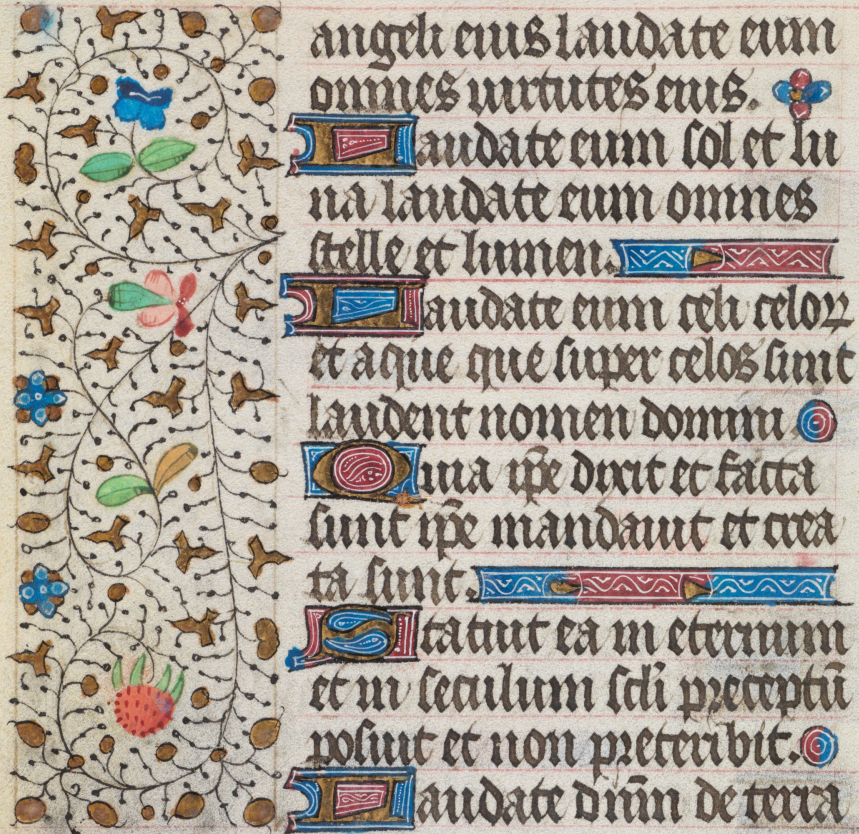 angeli eius laudate eum
omnes uirtutes eius.
Laudate eum sol et lu
na laudate eum omnes
stelle et lumen.
Laudate eum celi celoꝝ
et aque que super celos sunt
laudent nomen domini
Quia ip̄e dixit et facta
sunt ip̄e mandauit et crea
ta sunt.
Statuit ea in eternum
et in seculum scl̄i preceptū
posuit et non preteribit.
Laudate dn̄m de terra